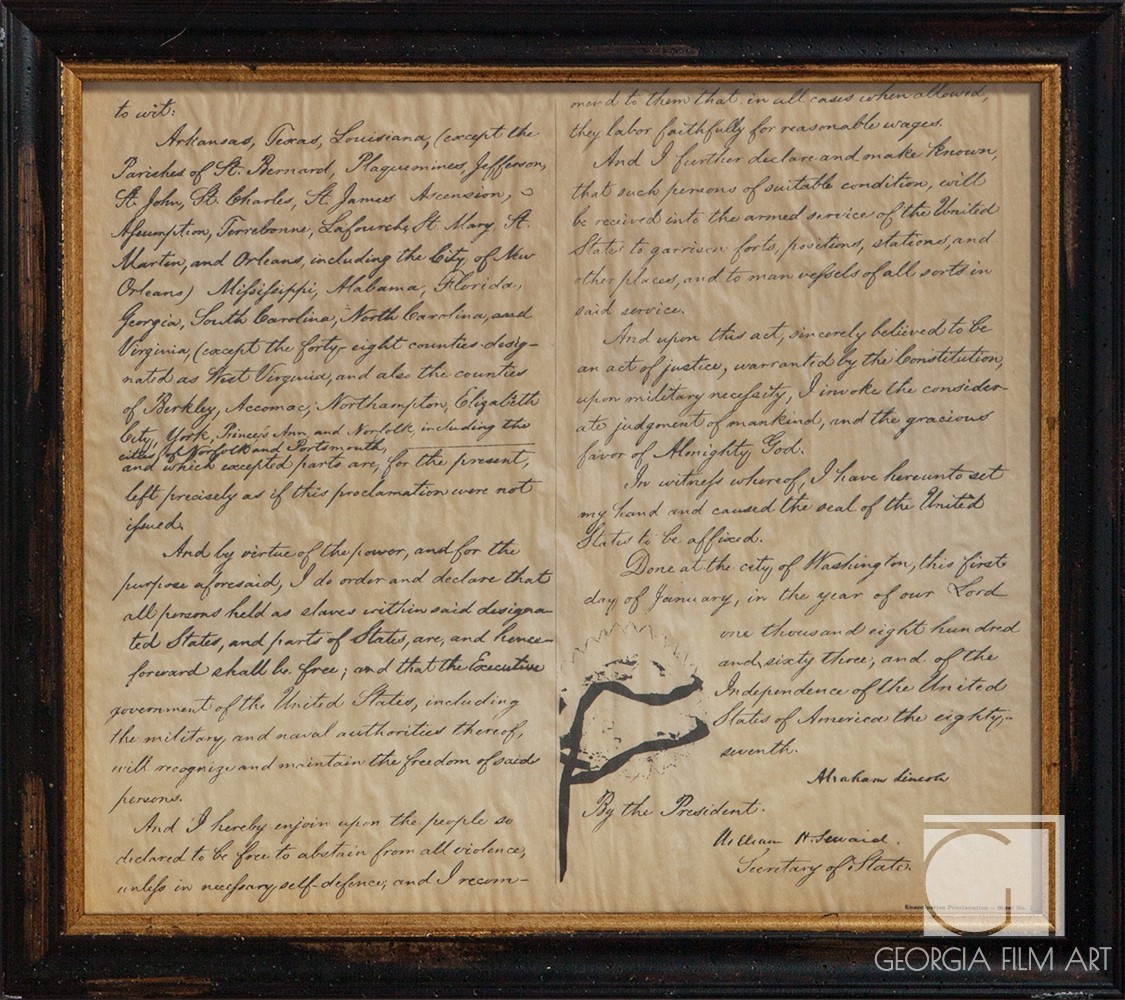 to wit:
Arkansas, Texas, Louisiana, (except the
Parishes of St. Bernard, Plaquemines, Jefferson,
St. John, St. Charles, St. James Ascension,
Assumption, Terrebonne, Lafourche, St. Mary, St.
Martin, and Orleans, including the City of New
Orleans) Mississippi, Alabama, Florida,
Georgia, South Carolina, North Carolina, and
Virginia, (except the forty-eight counties desig-
nated as West Virginia, and also the counties
of Berkley, Accomac, Northampton, Elizabeth
City, York, Princess Ann, and Norfolk, including the
cities of Norfolk and Portsmouth,
and which excepted parts are, for the present,
left precisely as if this proclamation were not
issued.
And by virtue of the power, and for the
purpose aforesaid, I do order and declare that
all persons held as slaves within said designa-
ted States, and parts of States, are, and hence-
forward shall be free; and that the Executive
government of the United States, including
the military and naval authorities thereof,
will recognize and maintain the freedom of said
persons.
And I hereby enjoin upon the people so
declared to be free to abstain from all violence,
unless in necessary self-defence; and I recom-
mend to them that in all cases when allowed,
they labor faithfully for reasonable wages.
And I further declare and make known,
that such persons of suitable condition, will
be received into the armed service of the United
States to garrison forts, positions, stations, and
other places, and to man vessels of all sorts in
said service.
And upon this act, sincerely believed to be
an act of justice, warranted by the Constitution,
upon military necessity, I invoke the consider-
ate judgment of mankind, and the gracious
favor of Almighty God.
In witness whereof, I have hereunto set
my hand and caused the seal of the United
States to be affixed.
Done at the city of Washington, this first
day of January, in the year of our Lord
one thousand eight hundred
and sixty three, and of the
Independence of the United
States of America the eighty-
seventh.
Abraham Lincoln
By the President.
William H. Seward.
Secretary of State.
Emancipation Proclamation — Sheet No.
GEORGIA FILM ART